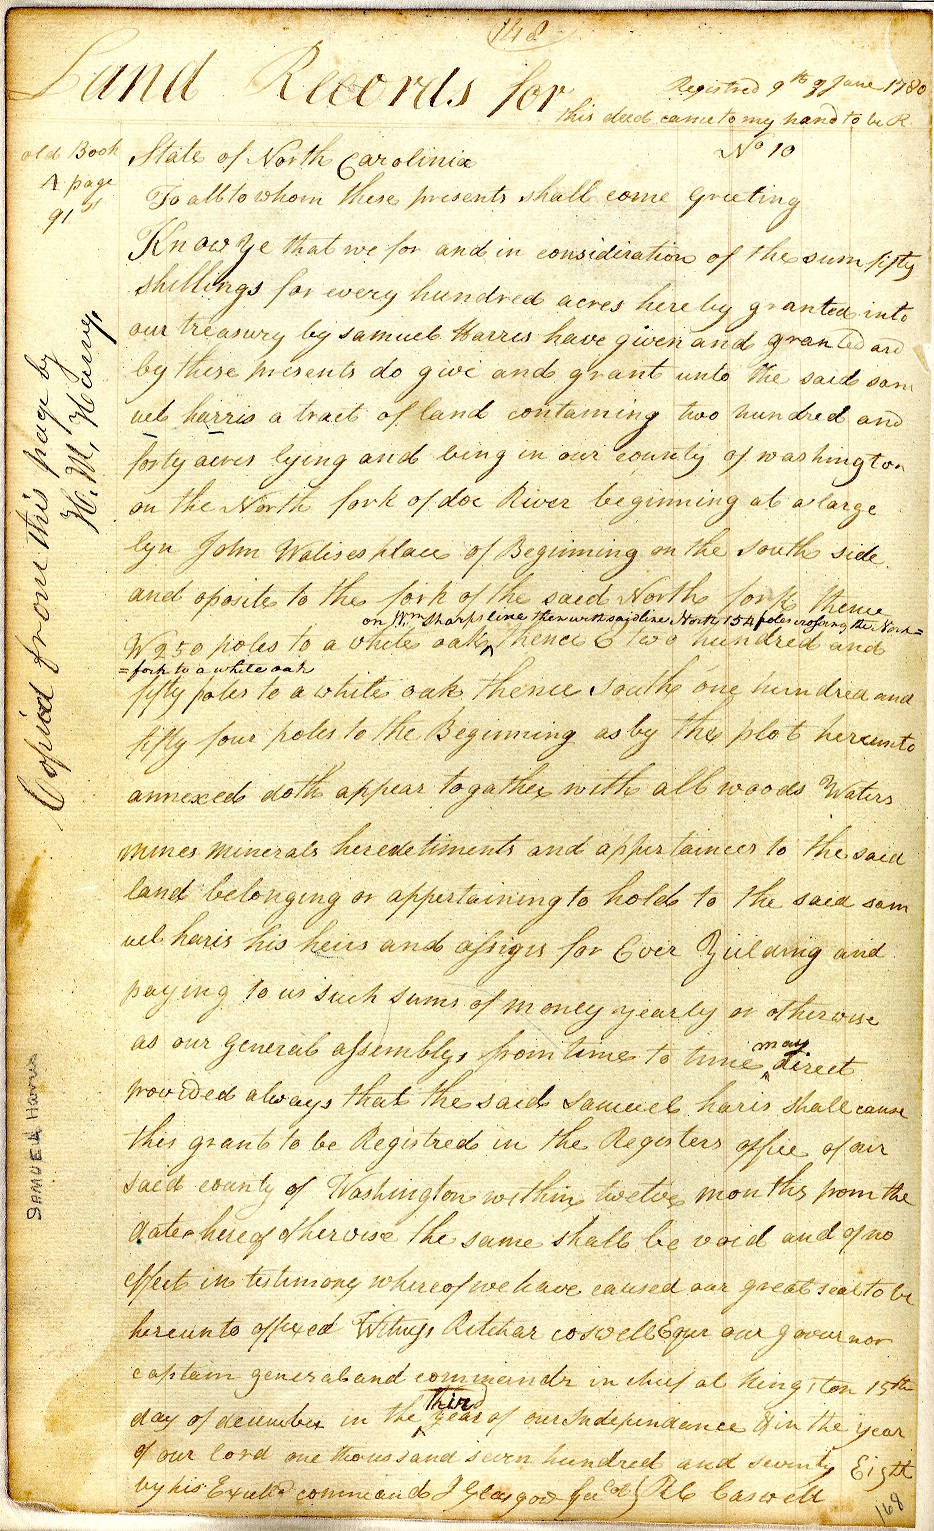 148
Land Records for
Registred 9th of June 1780
this deed came to my hand to be R
No 10
old Book
A page
91st
State of North Carolinia
To all to whom these presents shall come Greeting
Know Ye that we for and in consideration of the sum fifty
shillings for every hundred acres hereby granted into
our treasury by Samuel Harris have given and granted and
by these presents do give and grant unto the said sam
uel harris a tract of land containing two hundred and
forty acres lying and being in our county of washington
on the North fork of doe River beginning at a large
lyn John Walises place of Beginning on the south side
and oposite to the fork of the said North fork thence
on Wm Sharps line then with said line North 154 poles crossing the North=
W 250 poles to a white oak ^ thence E two hundred and
=fork to a white oak
fifty poles to a white oak thence south one hundred and
fifty four poles to the Beginning as by the plot hereunto
annexed doth appear togather with all woods Waters
mines minerals heredetiments and appertainces to the said
land belonging or appertaining to hold to the said sam
uel haris his heirs and assigns for Ever Yielding and
paying to us such sums of money yearly or otherwise
as our general assembly from time to time ^ may direct
provided always that the said samuel haris shall cause
this grant to be Registred in the Registers office of our
said county of Washington within twelve months from the
date hereof otherwise the same shall be void and of no
effect in testimony whereof we have caused our great seal to be
hereunto affixed Witness Ritchar coswell Eqer our governor
captain general and commandr in chief at kingston 15th
day of december in the ^ third year of our Independance & in the year
of our lord one thousand seven hundred and seventy Eigth
by his command J Glasgow Rd Caswell
Copied from this page by
H. M. Haney,
SAMUEL Harris
168